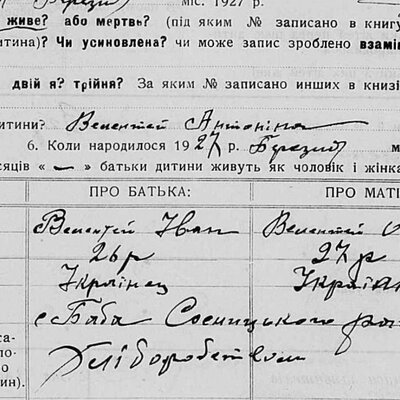 Березня міс. 1927 р.
живе? або мертве? (під яким № записано в книгу
итина)? Чи усиновлена? чи може запис зроблено взамін
двій я? трійня? За яким № записано инших в книзі
итини? Велентей Антоніна
6. Коли народилося 1927 р. Березня м
сяців « — » батьки дитини живуть як чоловік і жінка
ПРО БАТЬКА: ПРО МАТІ
Велентій Іван Велентей
26 р 27 р
Українец Україн
с Баба Сосницького рай
Хліборобством
са-
по-
о
ин).